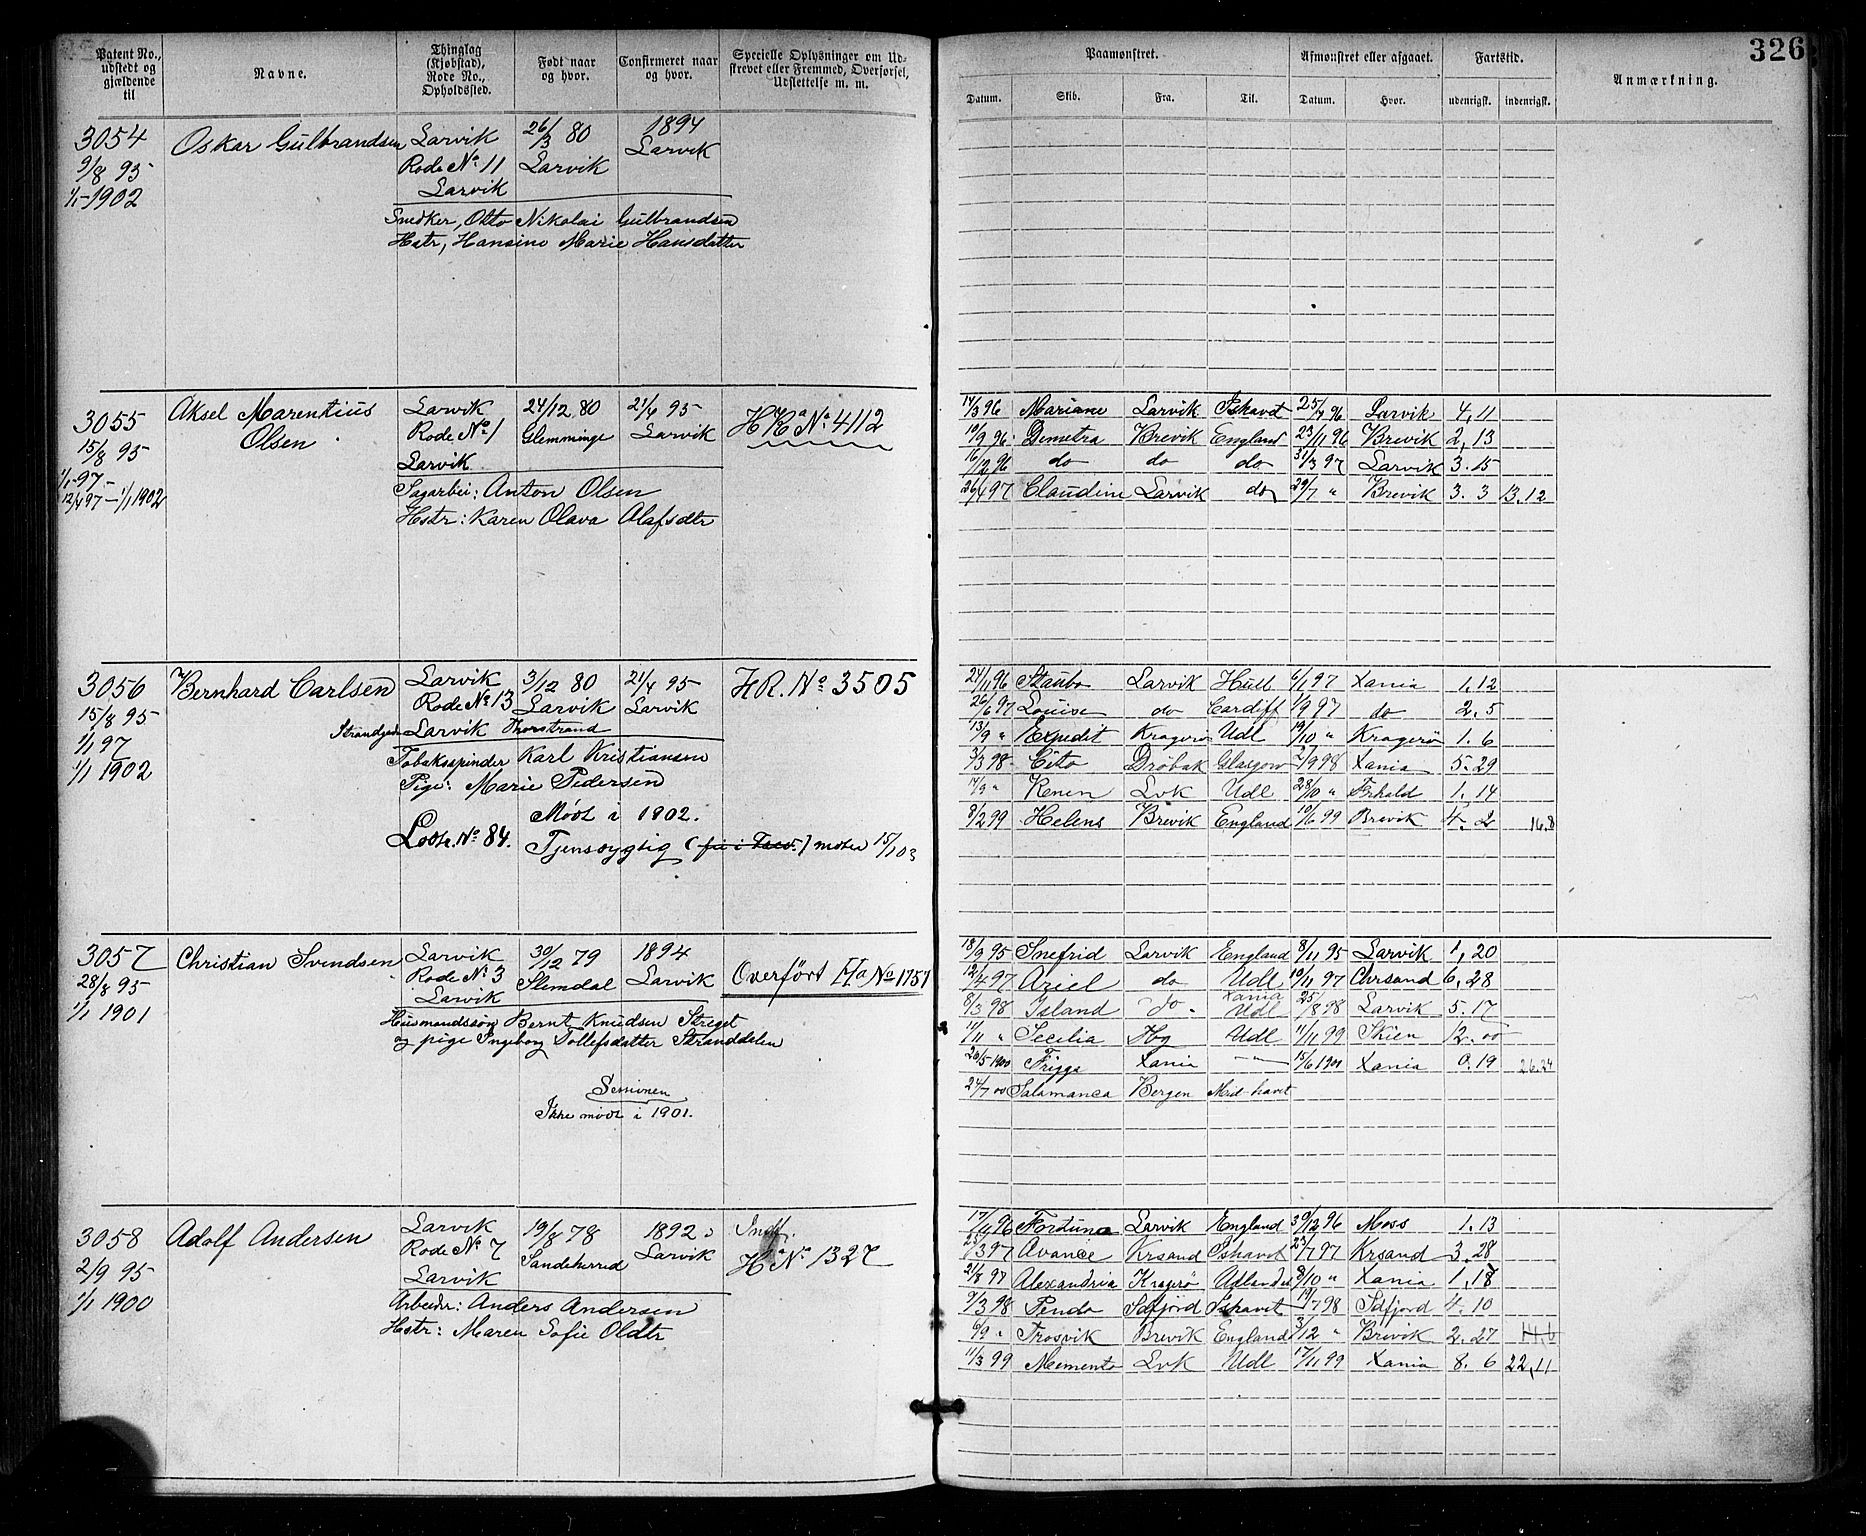 Patent No., udstedt og gjældende til
Navne.
Thinglag (Kjøbstad), Rode No., Opholdssted.
Født naar og hvor.
Confirmeret naar og hvor.
Specielle Oplysninger om Udskrevet eller Fremmed, Overførsel, Udslettelse m. m.
Paamønstret.
Datum. Skib. Fra. Til.
Afmønstret eller afgaaet.
Datum. Hvor.
Fartstid.
udenrigsk. indenrigsk.
Anmærkning.
326
3054 Oskar Gulbrandsen Larvik 26/3 80 1894
9/8 95 Rode No 11 Larvik Larvik
1/1-1902 Larvik
Snedker, Otto Nikolai Gulbrandsen
Hstr, Hansine Marie Hansdatter
3055 Aksel Marentius Larvik 24/12 80 21/4 95 No 4112
Olsen Rode No 1 Glemminge Larvik
15/8 95 Larvik
1/1-97-
12/4 97-1/1 1902
Sagarbei: Anton Olsen
Hstr: Karen Olava Olafsdtr
17/3 96 Mariane Larvik Ishavet 25/7 96 Larvik 4,11
10/9 96 Demetra Brevik England 23/11 96 Brevik 2,13
16/12 96 do do do 31/3 97 Larvik 3.15
26/4 97 Claudine Larvik do 29/7 " Brevik 3. 3 13.12
3056 Bernhard Carlsen Larvik 3/12 80 21/4 95 HR. No 3505
15/8 95 Rode No 13 Larvik Larvik
1/1 97 Larvik Thorstrand
1/1 1902
Tobaksspinder Karl Kristiansen
Pige: Marie Pedersen
Mødt i 1902.
Lodtr. No 84. Tjenstdygtig
24/11 96 Staubo Larvik Hull 6/1 97 Xania 1.12
26/6 97 Louise do Cardiff 1/9 97 do 2.5
13/9 " Expedit Kragerø Udl 19/10 " Kragerø 1.6
3/3 98 Cito Drøbak Glasgow 2/9 98 Xania 5.29
17/9 " Lvk Udl 28/10 " Frhald 1.14
8/2 99 Helens Brevik England 10/6 99 Brevik 4. 2 16.8
3057 Christian Svendsen Larvik 30/12 79 1894 Overført Ha No 1757
28/8 95 Rode No 3 Slemdal Larvik
1/1 1901 Larvik
Husmandssøn Bernt Knudsen
og pige Ingeborg Tollefsdatter Stranddalen
Sessionen
Ikke mødt i 1901.
18/9 95 Snefrid Larvik England 8/11 95 Larvik 1,20
12/4 97 Ariel do Udl 10/11 97 Chrsand 6,28
8/3 98 Island do Xania Udl 25/8 98 Larvik 5.17
11/11 " Cecilia Hbg Udl 11/11 99 Skien 12.00
26/5 1900 Frigga Xania - " - 15/6 1900 Xania 0.19 26.24
24/7 00 Salamanca Bergen Mid-havet
3058 Adolf Andersen Larvik 19/8 78 1892 Indf.
2/9 95 Rode No 7 Sandeherred Larvik Ha No 1327
1/1 1900 Larvik
Arbeider: Anders Andersen
Hstr: Maren Sofie Oldtr
17/11 96 Fortuna Larvik England 30/12 96 Moss 1.13
25/3 97 Avance Krsand Ishavet 23/7 97 Krsand 3.28
21/8 97 Alexandria Kragerø 8/10 " Xania 1,18
9/3 98 Penda Sdfjord Ishavet 19/7 98 Sdfjord 4.10
6/9 " Trosvik Brevik England 3/12 " Brevik 2.27
11/3 99 Memento Lvk Udl 17/11 99 Xania 8. 6 22,11